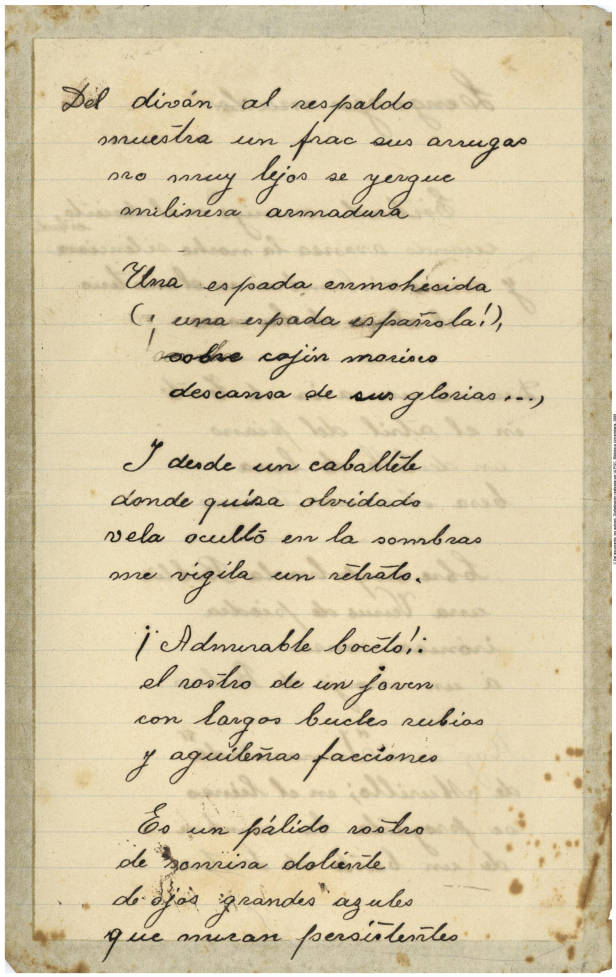 Del diván al respaldo
muestra un frac sus arrugas
no muy lejos se yergue
milinesa armadura
Una espada enmohecida
(¡ una espada española!),
sobre cojín morisco
descansa de sus glorias...,
I desde un caballete
donde quiza olvidado
vela ocultó en la sombras
me vigila un retrato.
¡Admirable boceto!:
el rostro de un joven
con largos bucles rubios
y aguileñas facciones
Es un pálido rostro
de sonrisa doliente
de ojos grandes azules
que miran persistentes